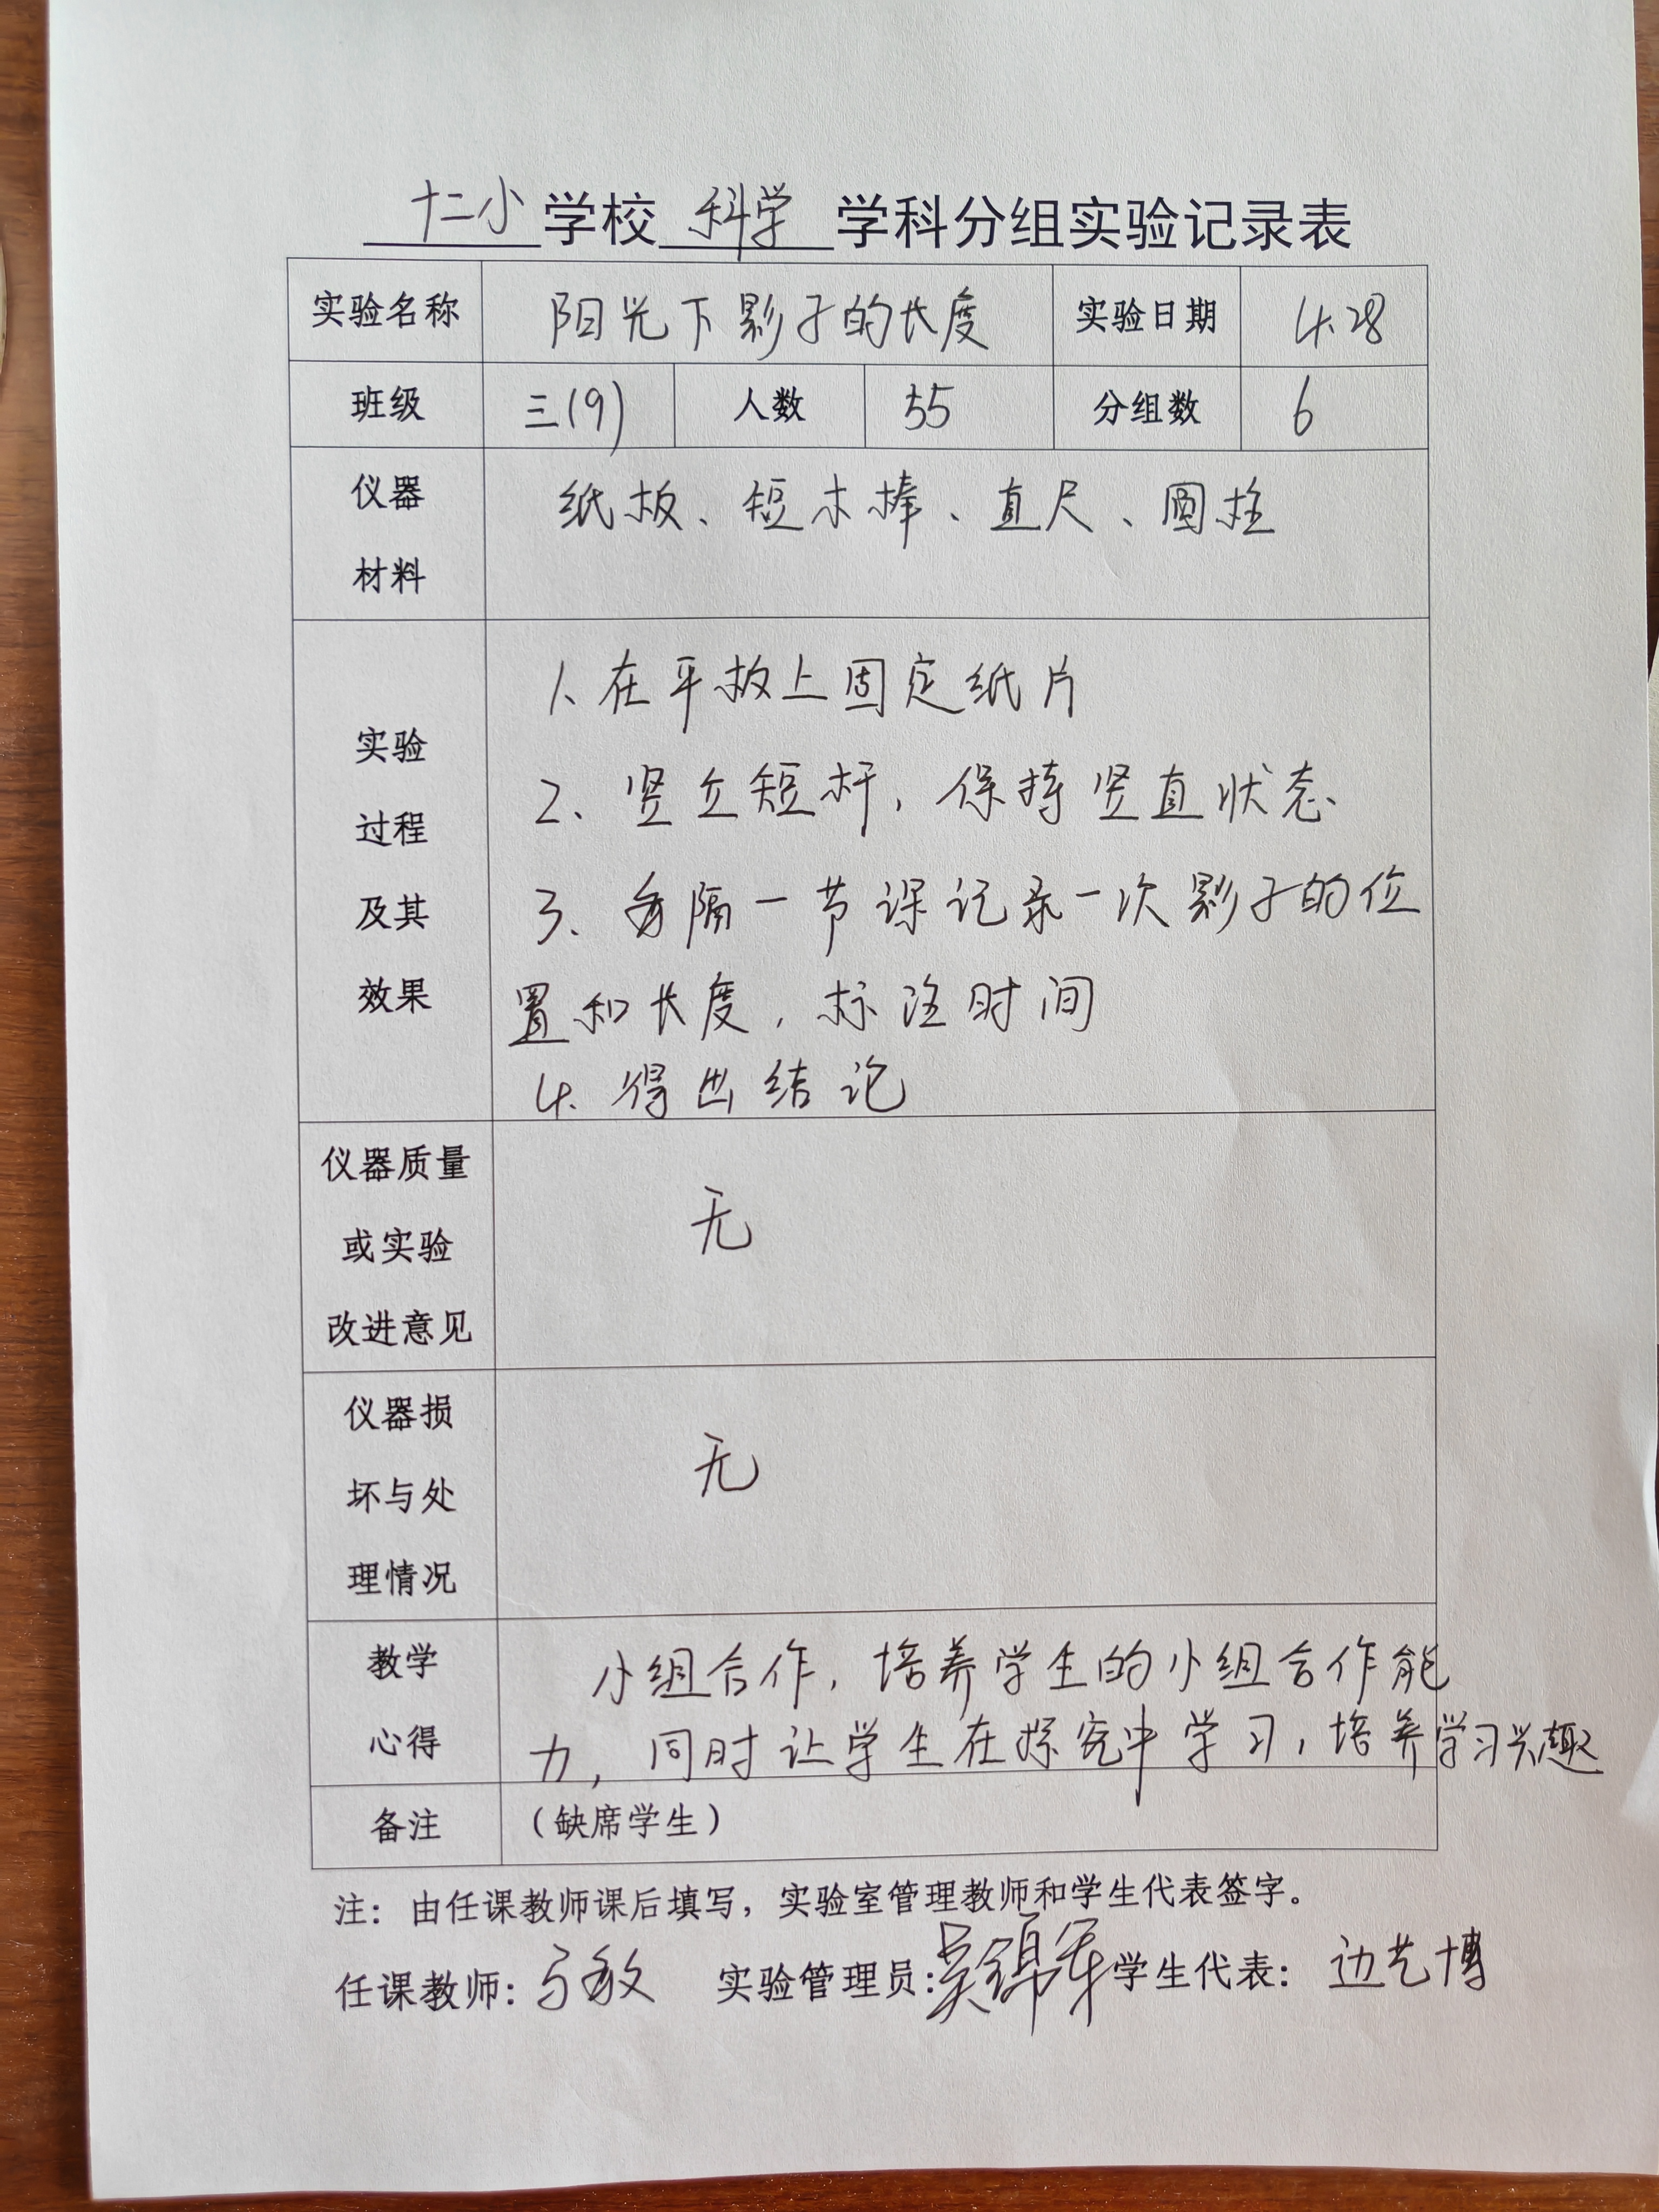 十二小学校科学学科分组实验记录表
实验名称 阳光下影子的长度 实验日期 4.28
班级 三(9) 人数 55 分组数 6
仪器 纸板、短木棒、直尺、圆柱
材料
1、在平板上固定纸片
实验
2、竖立短杆,保持竖直状态、
过程
3、每隔一节课记录一次影子的位
及其
效果
置和长度,标注时间
4、得出结论
仪器质量
或实验 无
改进意见
仪器损
坏与处 无
理情况
教学 小组合作,培养学生的小组合作能
心得 力,同时让学生在探究中学习,培养学习兴趣
备注 (缺席学生)
注:由任课教师课后填写,实验室管理教师和学生代表签字。
任课教师: 实验管理员: 学生代表: 边艺博